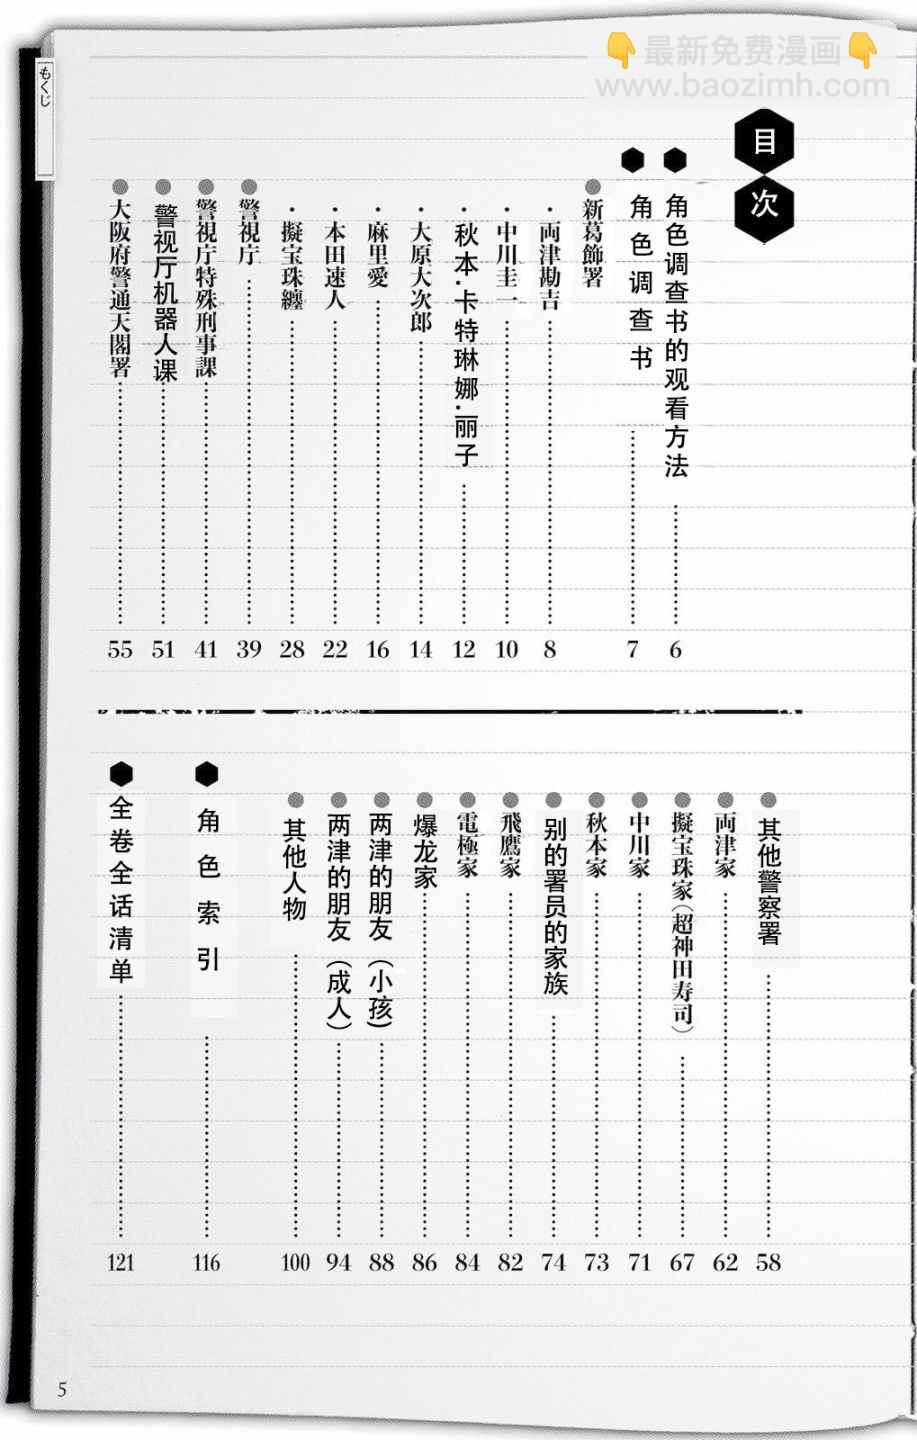 👇最新免费漫画👇
www.baozimh.com
もくじ
目次
角色调查书的观看方法 6
角色调查书 7
新葛飾署
・両津勘吉 8
・中川圭一 10
・秋本·卡特琳娜·丽子 12
・大原大次郎 14
・麻里愛 16
・本田速人 22
・擬宝珠纏 28
警視庁 39
警視庁特殊刑事課 41
警视厅机器人课 51
大阪府警通天閣署 55
其他警察署 58
両津家 62
擬宝珠家（超神田寿司） 67
中川家 71
秋本家 73
别的署员的家族 74
飛鷹家 82
電極家 84
爆龙家 86
两津的朋友（小孩） 88
两津的朋友（成人） 94
其他人物 100
角色索引 116
全卷全话清单 121
5